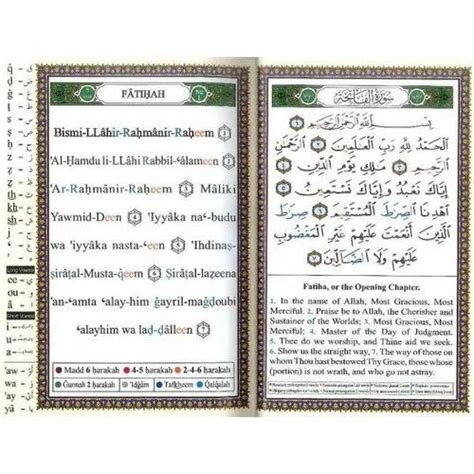 FÂTIḤAH
Bismi-LLâhir-Raḥmânir-Raḥeem
'Al-Ḥamdu li-LLâhi Rabbil-ʿâlameen
'Ar-Raḥmânir-Raḥeem Mâliki
Yawmid-Deen 'Iyyâka naʿ-budu
wa 'iyyâka nasta-ʿeen 'Ihdinaṣ-
Ṣirâṭal-Musta-q̇eem Ṣirâṭal-lazeena
'an-ʿamta ʿalay-him ġayril-maġḍoubi
ʿalayhim wa laḍ-ḍâlleen
Madd 6 ḥarakah 4-5 ḥarakah 2-4-6 ḥarakah
Ġunnah 2 ḥarakah 'Idġâm Tafkheem Qalqalah
Long Vowels
ee
ou
â
Short Vowels
i
u
a
سورة الفاتحة
بِسْمِ اللَّهِ الرَّحْمَٰنِ الرَّحِيمِ ١
الْحَمْدُ لِلَّهِ رَبِّ الْعَالَمِينَ ٢ الرَّحْمَٰنِ
الرَّحِيمِ ٣ مَالِكِ يَوْمِ الدِّينِ ٤
إِيَّاكَ نَعْبُدُ وَإِيَّاكَ نَسْتَعِينُ ٥
اهْدِنَا الصِّرَاطَ الْمُسْتَقِيمَ ٦ صِرَاطَ
الَّذِينَ أَنْعَمْتَ عَلَيْهِمْ غَيْرِ الْمَغْضُوبِ
عَلَيْهِمْ وَلَا الضَّالِّينَ ٧
Fatiha, or the Opening Chapter.
1. In the name of Allah, Most Gracious, Most
Merciful. 2. Praise be to Allah, the Cherisher and
Sustainer of the Worlds; 3. Most Gracious, Most
Merciful; 4. Master of the Day of Judgment.
5. Thee do we worship, and Thine aid we seek.
6. Show us the straight way, 7. The way of those on
Whom Thou hast bestowed Thy Grace, those whose
(portion) is not wrath, and who go not astray.